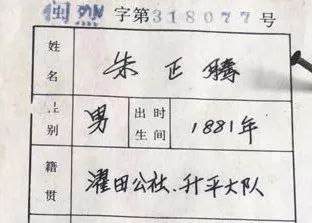 闽烈 字第318077号
姓名 朱正腾
性别 男 出生时间 1881年
籍贯 濯田公社、升平大队